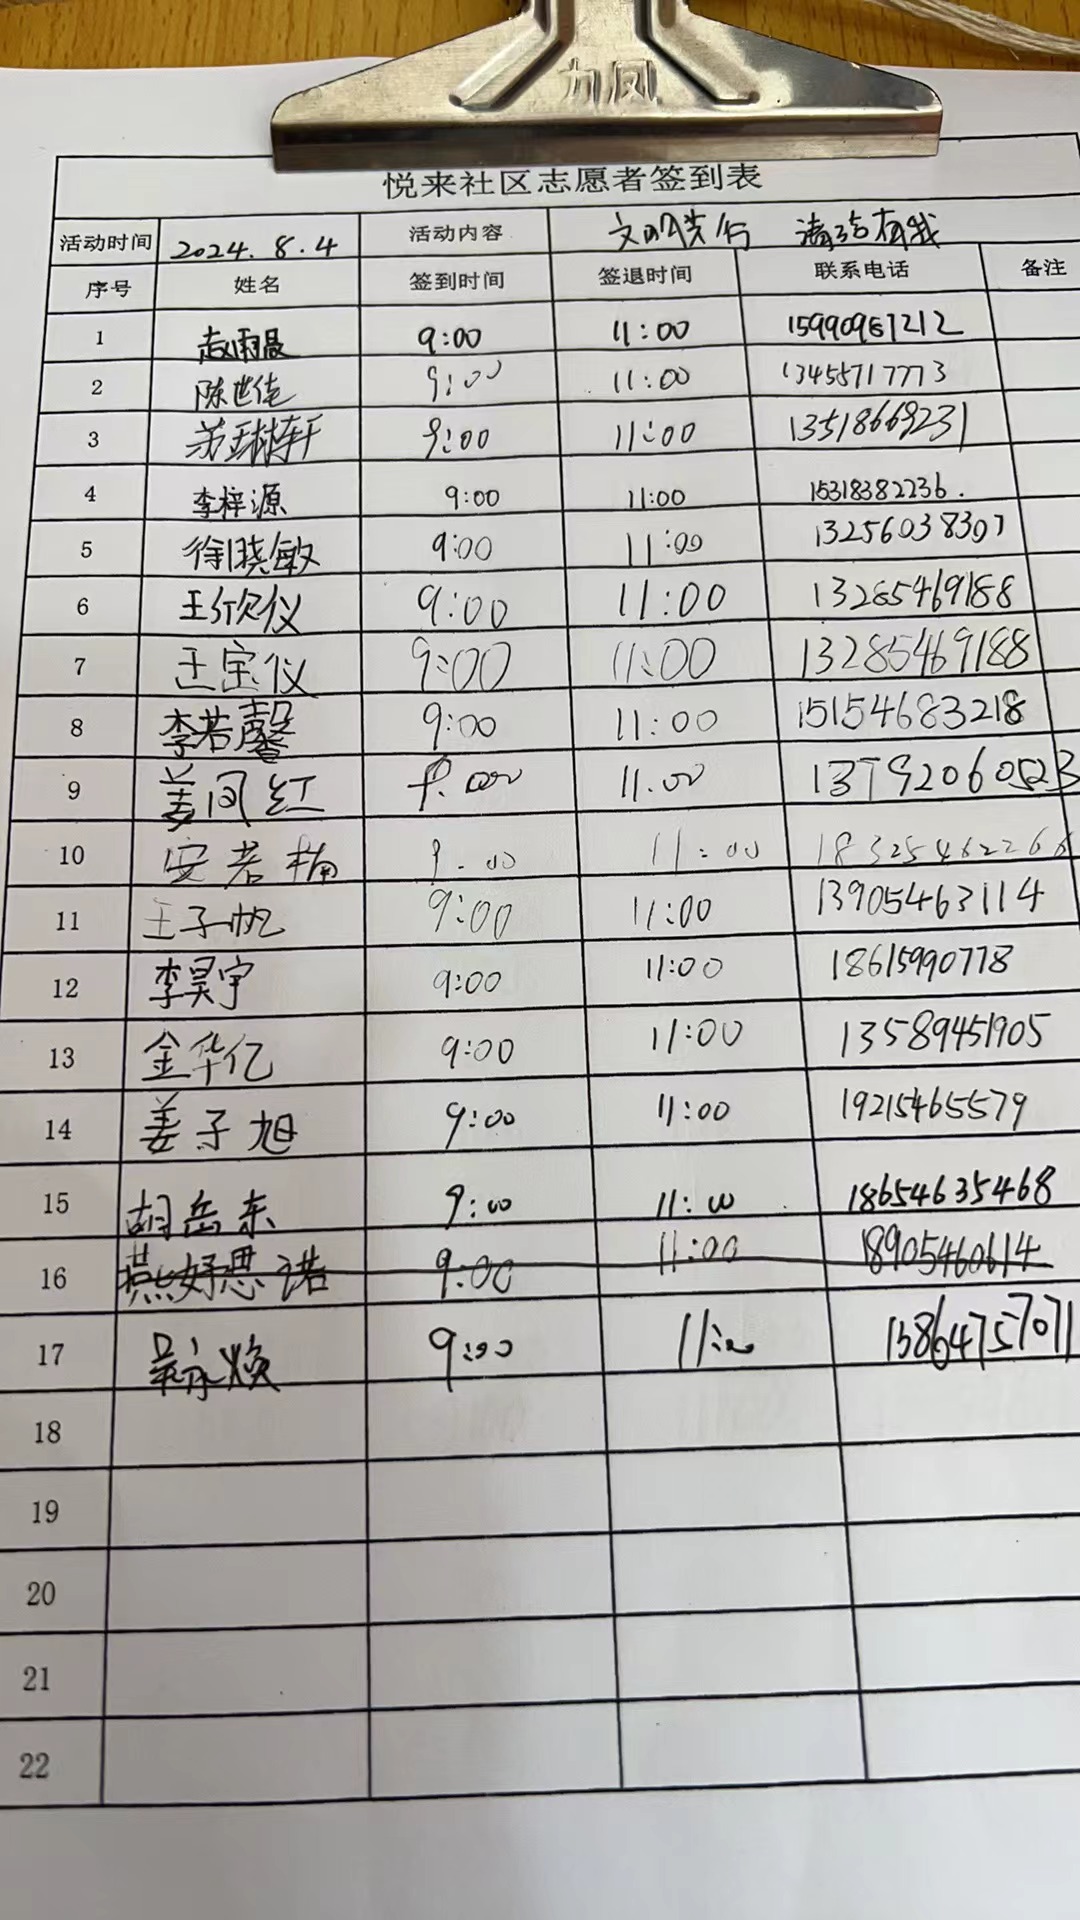 力凤
悦来社区志愿者签到表
活动时间 2024.8.4 活动内容 文明先行 清洁有我
序号 姓名 签到时间 签退时间 联系电话 备注
1 赵雨晨 9:00 11:00 15990961212
2 陈世佳 9:00 11:00 13455717773
3 9:00 11:00 13518669231
4 李梓源 9:00 11:00 15318382236.
5 徐晓敏 9:00 11:00 13256038307
6 王欣仪 9:00 11:00 13285469188
7 王宝仪 9:00 11:00 13285469188
8 李若馨 9:00 11:00 15154683218
9 姜凤红 9:00 11:00 13792060523
10 安若楠 9:00 11:00 18325462266
11 王子帆 9:00 11:00 13905463114
12 李昊宇 9:00 11:00 18615990778
13 金华亿 9:00 11:00 13589451905
14 姜子旭 9:00 11:00 19215465579
15 胡岳东 9:00 11:00 18654635468
16 燕好思诺 9:00 11:00 18905460614
17 吴永焕 9:00 11:00 13864757071
18
19
20
21
22